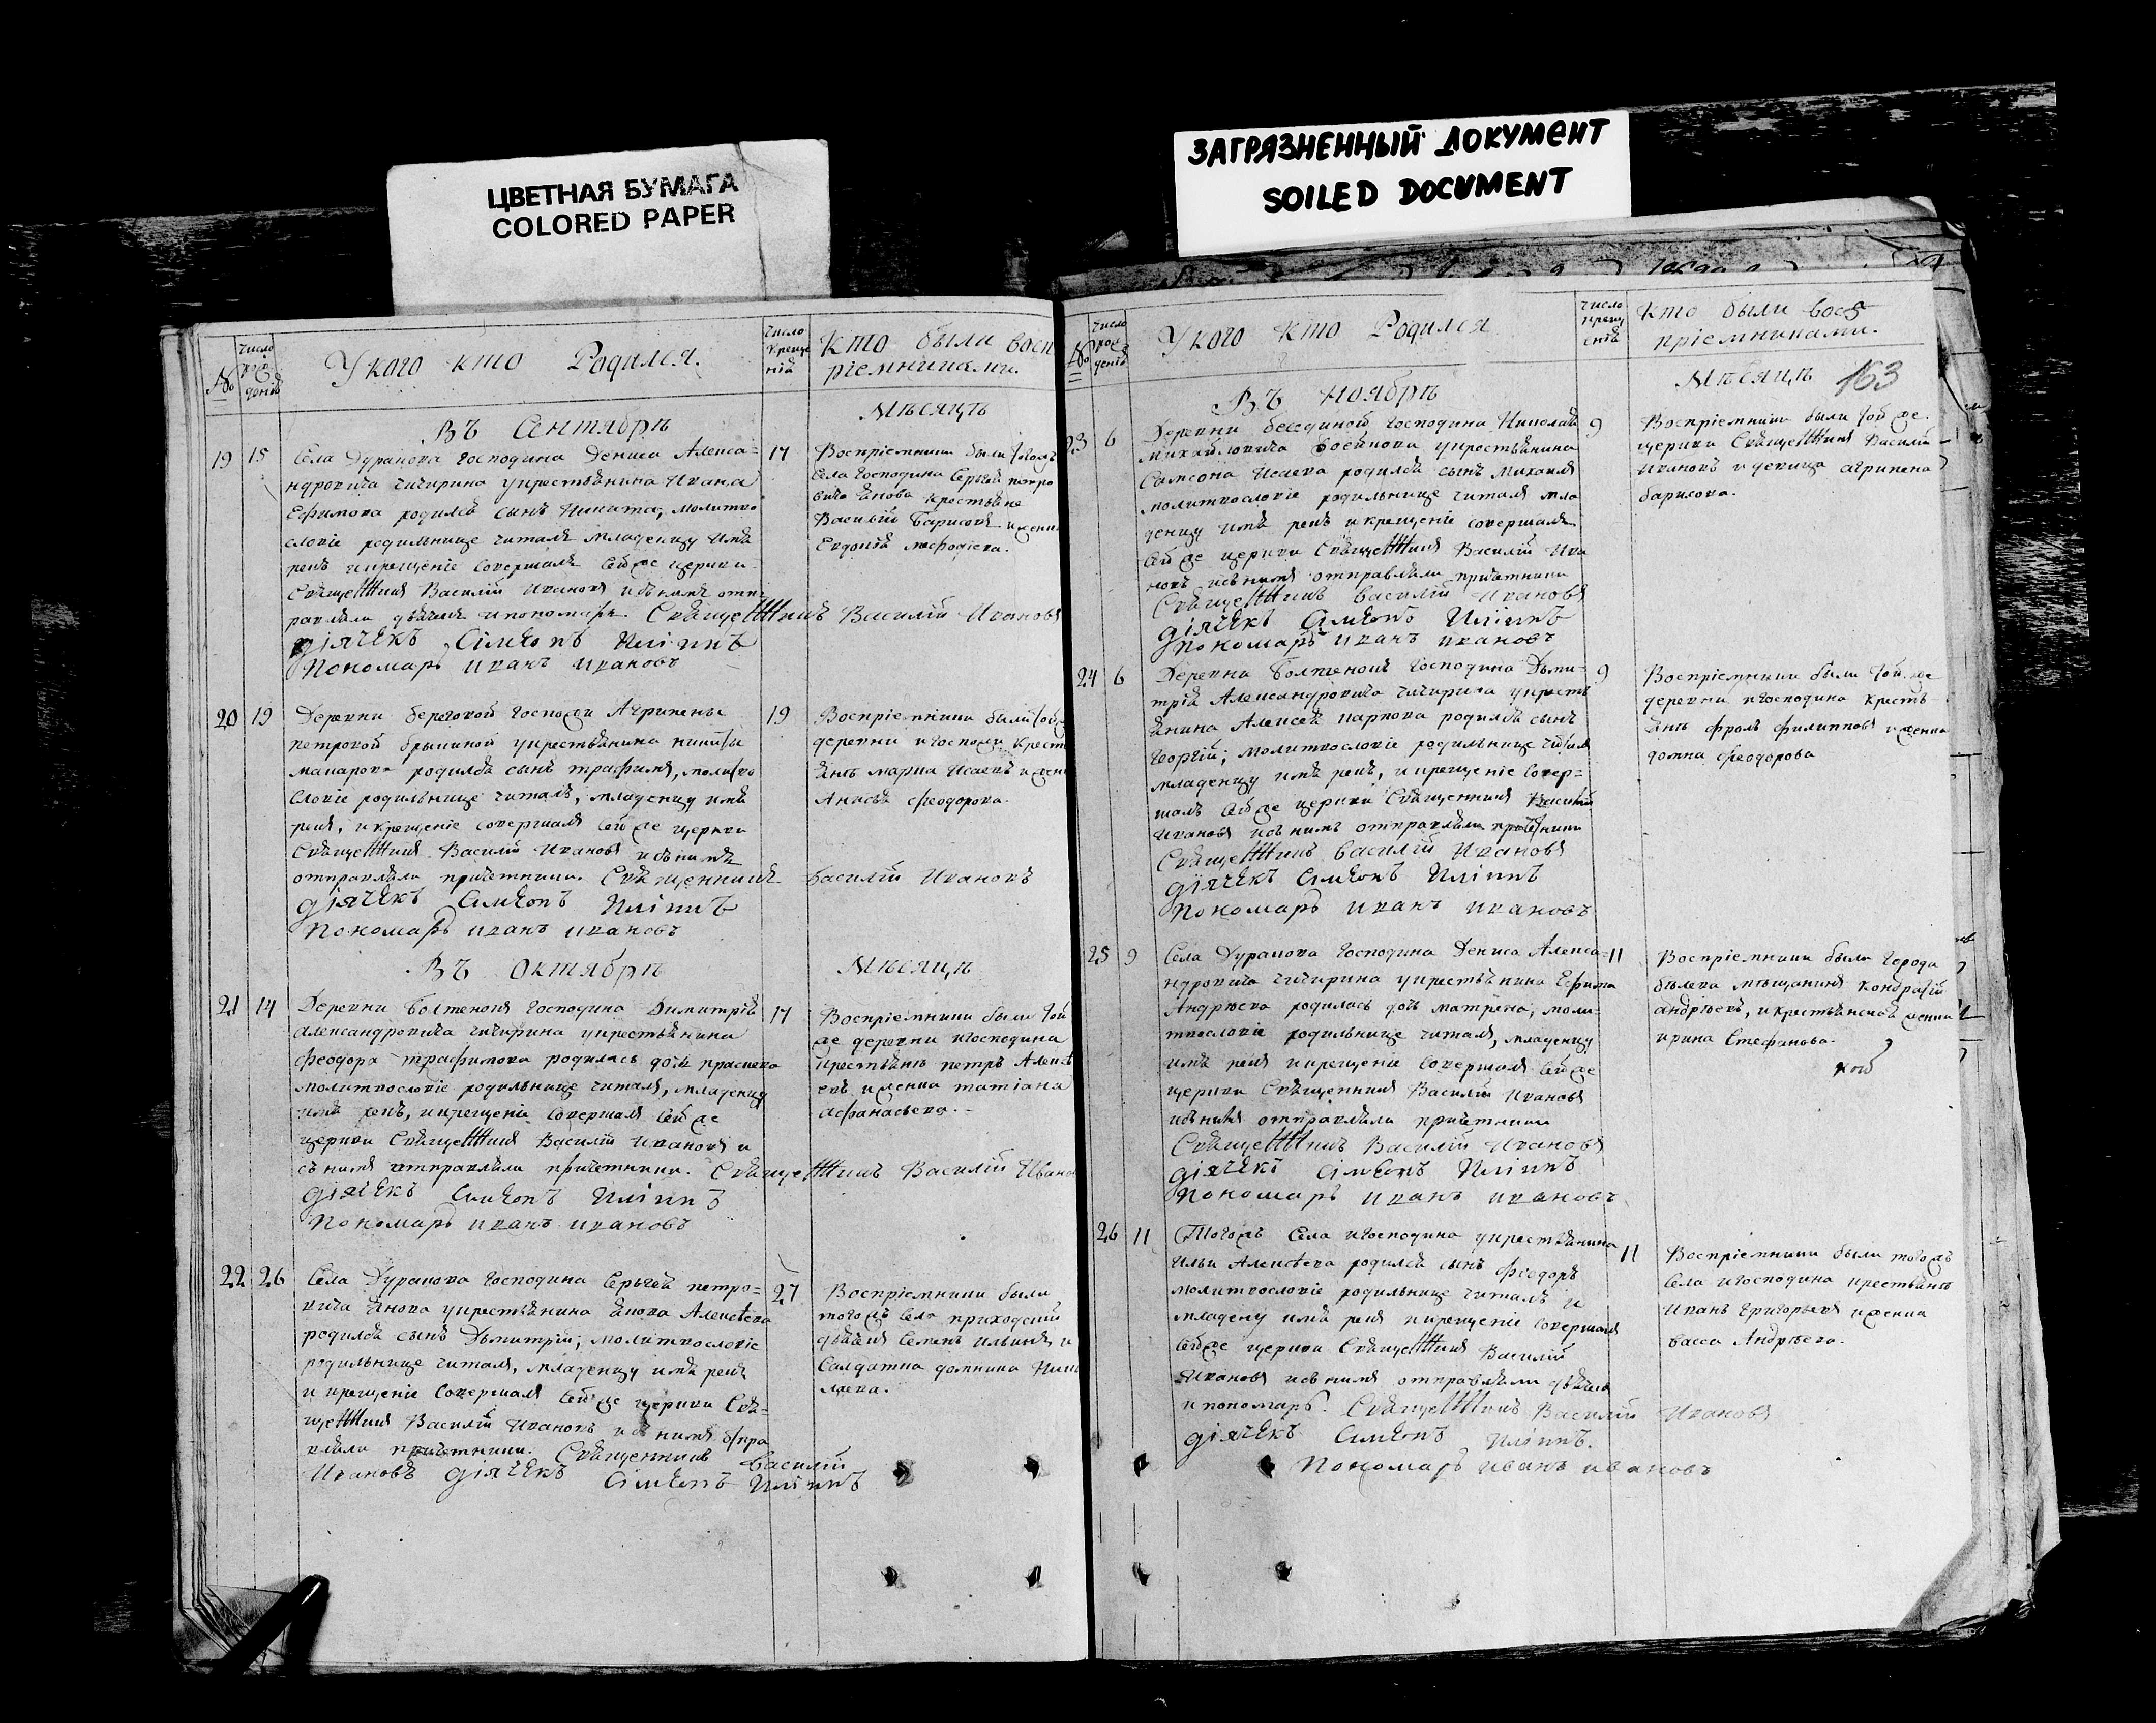 ЦВЕТНАЯ БУМАГА
COLORED PAPER
ЗАГРЯЗНЕННЫЙ ДОКУМЕНТ
SOILED DOCUMENT
№
число рождений
У кого кто Родился.
число крещений
Кто были восприемниками.
Въ Сентябрѣ
Мѣсяцѣ
19 15
Села Дуракова господина Дениса Алекса=
ндровича чичирина укрестьянина Ивана
Ефимова родился сынъ Никита, молитво
словіе родильнице читалъ младенцу имя
рекъ икрещеніе совершалъ сейже церкви
Священникъ Василій Ивановъ исънимъ отпра
равляли дьячекъ ипономарь. Священникъ Василій Ивановъ
діячекъ Сімеонъ Иліинъ
Пономарь иванъ ивановъ
17
Воспріемники были тогожъ
села господина Сергея петро
вича Янова крестьяне
Василій Барисовъ ижена
Евдокія мефодіева.
20 19
Деревни береговой госпожи Агрипены
петровой брыкиной укрестьянина никиты
макарова родился сынъ трафимъ, молитво
словіе родильнице читалъ, младенцу имя
рекъ, икрещеніе совершалъ сейже церкви
Священникъ Василій Ивановъ исънимъ
отправляли причетники. Священникъ Василій Ивановъ
діячекъ Симеонъ Иліинъ
Пономарь иванъ ивановъ
19
Воспріемники были тойже
деревни игоспожи крест
янъ марка Исаевъ ижена
Анисья феодорова.
Въ Октябрѣ
Мѣсяцѣ
21 14
Деревни Болтенокъ господина Димитрія
александровича чичирина укрестьянина
феодора трафимова родилась дочь праскева
молитвословіе родильнице читалъ, младенцу
имя рекъ, икрещеніе совершалъ сейже
церкви Священникъ Василій Ивановъ и
съ нимъ отправляли причетники. Священникъ Василій Ивановъ
діячекъ Симеонъ Иліинъ
Пономарь иванъ ивановъ
17
Воспріемники были той
же деревни игосподина
крестьянъ петръ Алексѣ
евъ ижена татіана
Афанасьева.
22 26
Села Дуракова господина Сергея петро=
вича Янова укрестьянина Якова Алексѣева
родился сынъ Дьмитрій; молитвословіе
родильнице читалъ, младенцу имя рекъ
и крещеніе совершалъ сейже церкви Свя=
щенникъ Василій Ивановъ исъ нимъ отпра
вляли причетники. Священникъ Василій
Ивановъ діячекъ Сімеонъ Иліинъ
27
Воспріемники были
тогожъ села приходскій
дьячекъ Семенъ Ильинъ, и
Салдатка домника Нико
лаева.
№
число рождений
У кого кто Родился
число крещеній
Кто были вос
пріемниками.
5
163
Въ ноябрѣ
Мѣсяцѣ
23 6
Деревни беседикой господина Николая
михайловича Воейкова укрестьянина
Самсона Исаева родился сынъ михаилъ
молитвословіе родильнице читалъ мла
денцу имя рекъ икрещеніе совершалъ
сейже церкви Священникъ Василій Ива
новъ исънимъ отправляли причетники
Священникъ Василій Ивановъ
діячекъ Симеонъ Иліинъ
Пономарь иванъ ивановъ
9
Воспріемники были тойже.
церкви Священникъ Василій
Ивановъ идевица агрипена
барисова.
24 6
Деревни Болтенокъ господина Дьми=
трія Александровича чичирина укресть
янина Алексея карпова родился сынъ
Георгій; молитвословіе родильнице читалъ
младенцу имя рекъ, икрещеніе совер=
шалъ сейже церкви Священникъ Василій
Ивановъ исъ нимъ отправляли причетники
Священникъ Василій Ивановъ
діячекъ Симеонъ Иліинъ
Пономарь иванъ ивановъ
9
Воспріемники были той же
деревни игосподина кресть
янъ фролъ филиповъ ижена
домна феодорова
25 9
Села Дуракова господина Дениса Алекса=
ндровича чичирина укрестьянина Ефима
Андрѣева родилась дочь матрена, моли=
твословіе родильнице читалъ, младенцу
имя рекъ икрещеніе совершалъ сейже
церкви Священникъ Василій Ивановъ
исънимъ отправляли причетники
Священникъ Василій Ивановъ
діячекъ Сімеонъ Иліинъ
Пономарь иванъ ивановъ
11
Воспріемники были города
бѣлева мѣщанинъ кондратій
андрѣевъ, икрестьянская жена
ирина Стефанова.
26 11
Тогожъ села игосподина укрестьянина
Ильи Алексѣева родился сынъ феодоръ
молитвословіе родильнице читалъ и
младену имя рекъ икрещеніе совершалъ
сейже церкви Священникъ Василій
Ивановъ исънимъ отправляли дьячекъ
и пономарь. Священникъ Василій Ивановъ
діячекъ Симеонъ Иліинъ.
Пономарь иванъ ивановъ
11
Воспріемники были тогожъ
села игосподина крестьянъ
Иванъ григорьевъ ижена
васса Андрѣева.